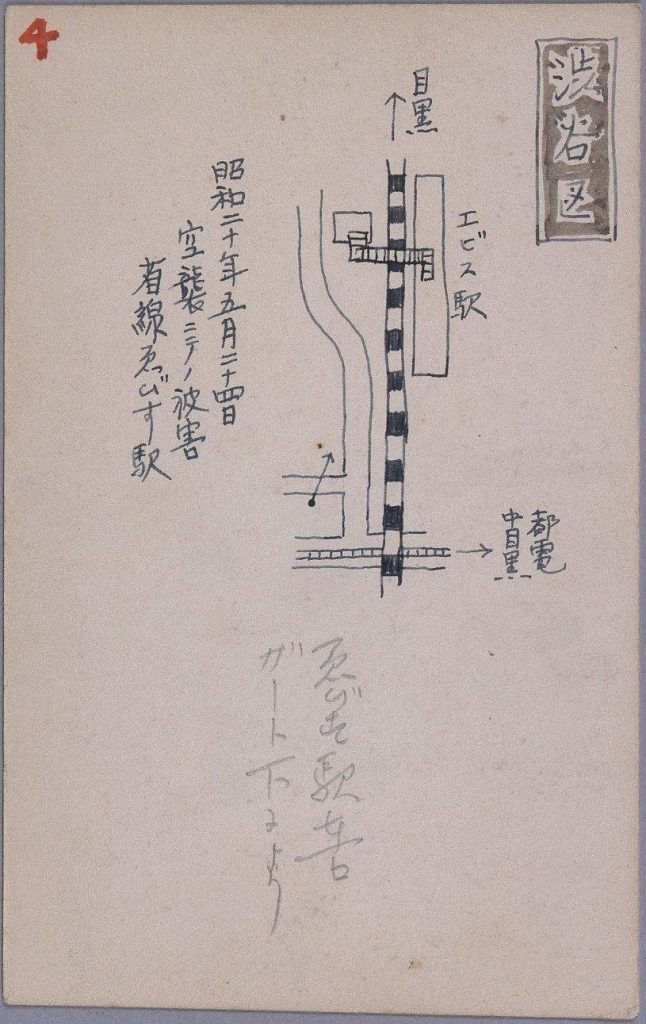 4
渋谷区
目黒
エビス駅
昭和二十年五月二十四日
空襲ニテノ被害
省線ゑびす駅
都電
中目黒
ゑびす駅
ガート下より